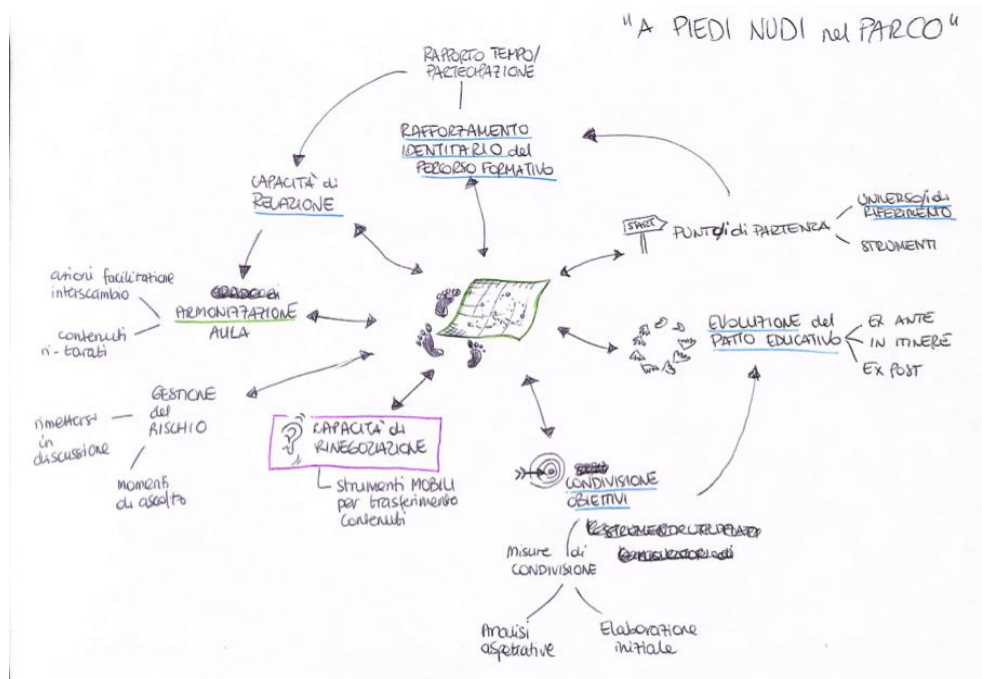 "A PIEDI NUDI nel PARCO"
RAPPORTO TEMPO/
PARTECIPAZIONE
RAFFORZAMENTO
IDENTITARIO del
PERCORSO FORMATIVO
CAPACITÀ di
RELAZIONE
START
PUNTO/i di PARTENZA
UNIVERSO/i di
RIFERIMENTO
STRUMENTI
azioni facilitazione
interscambio
ARMONIZZAZIONE
AULA
contenuti
ri-tarati
EVOLUZIONE del
PATTO EDUCATIVO
EX ANTE
IN ITINERE
EX POST
GESTIONE
del
RISCHIO
rimettersi
in
discussione
momenti
di ascolto
CAPACITÀ di
RINEGOZIAZIONE
strumenti MOBILI
per trasferimento
contenuti
CONDIVISIONE
OBIETTIVI
Misure di
CONDIVISIONE
Analisi
aspettative
Elaborazione
iniziale